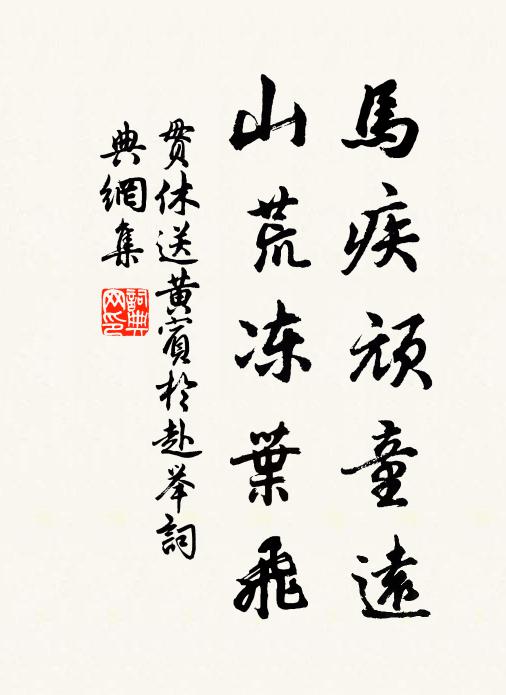 馬疾頑童遠
山荒凍葉飛
贯休送黄賓於赴举詞
典網集
詞典網印